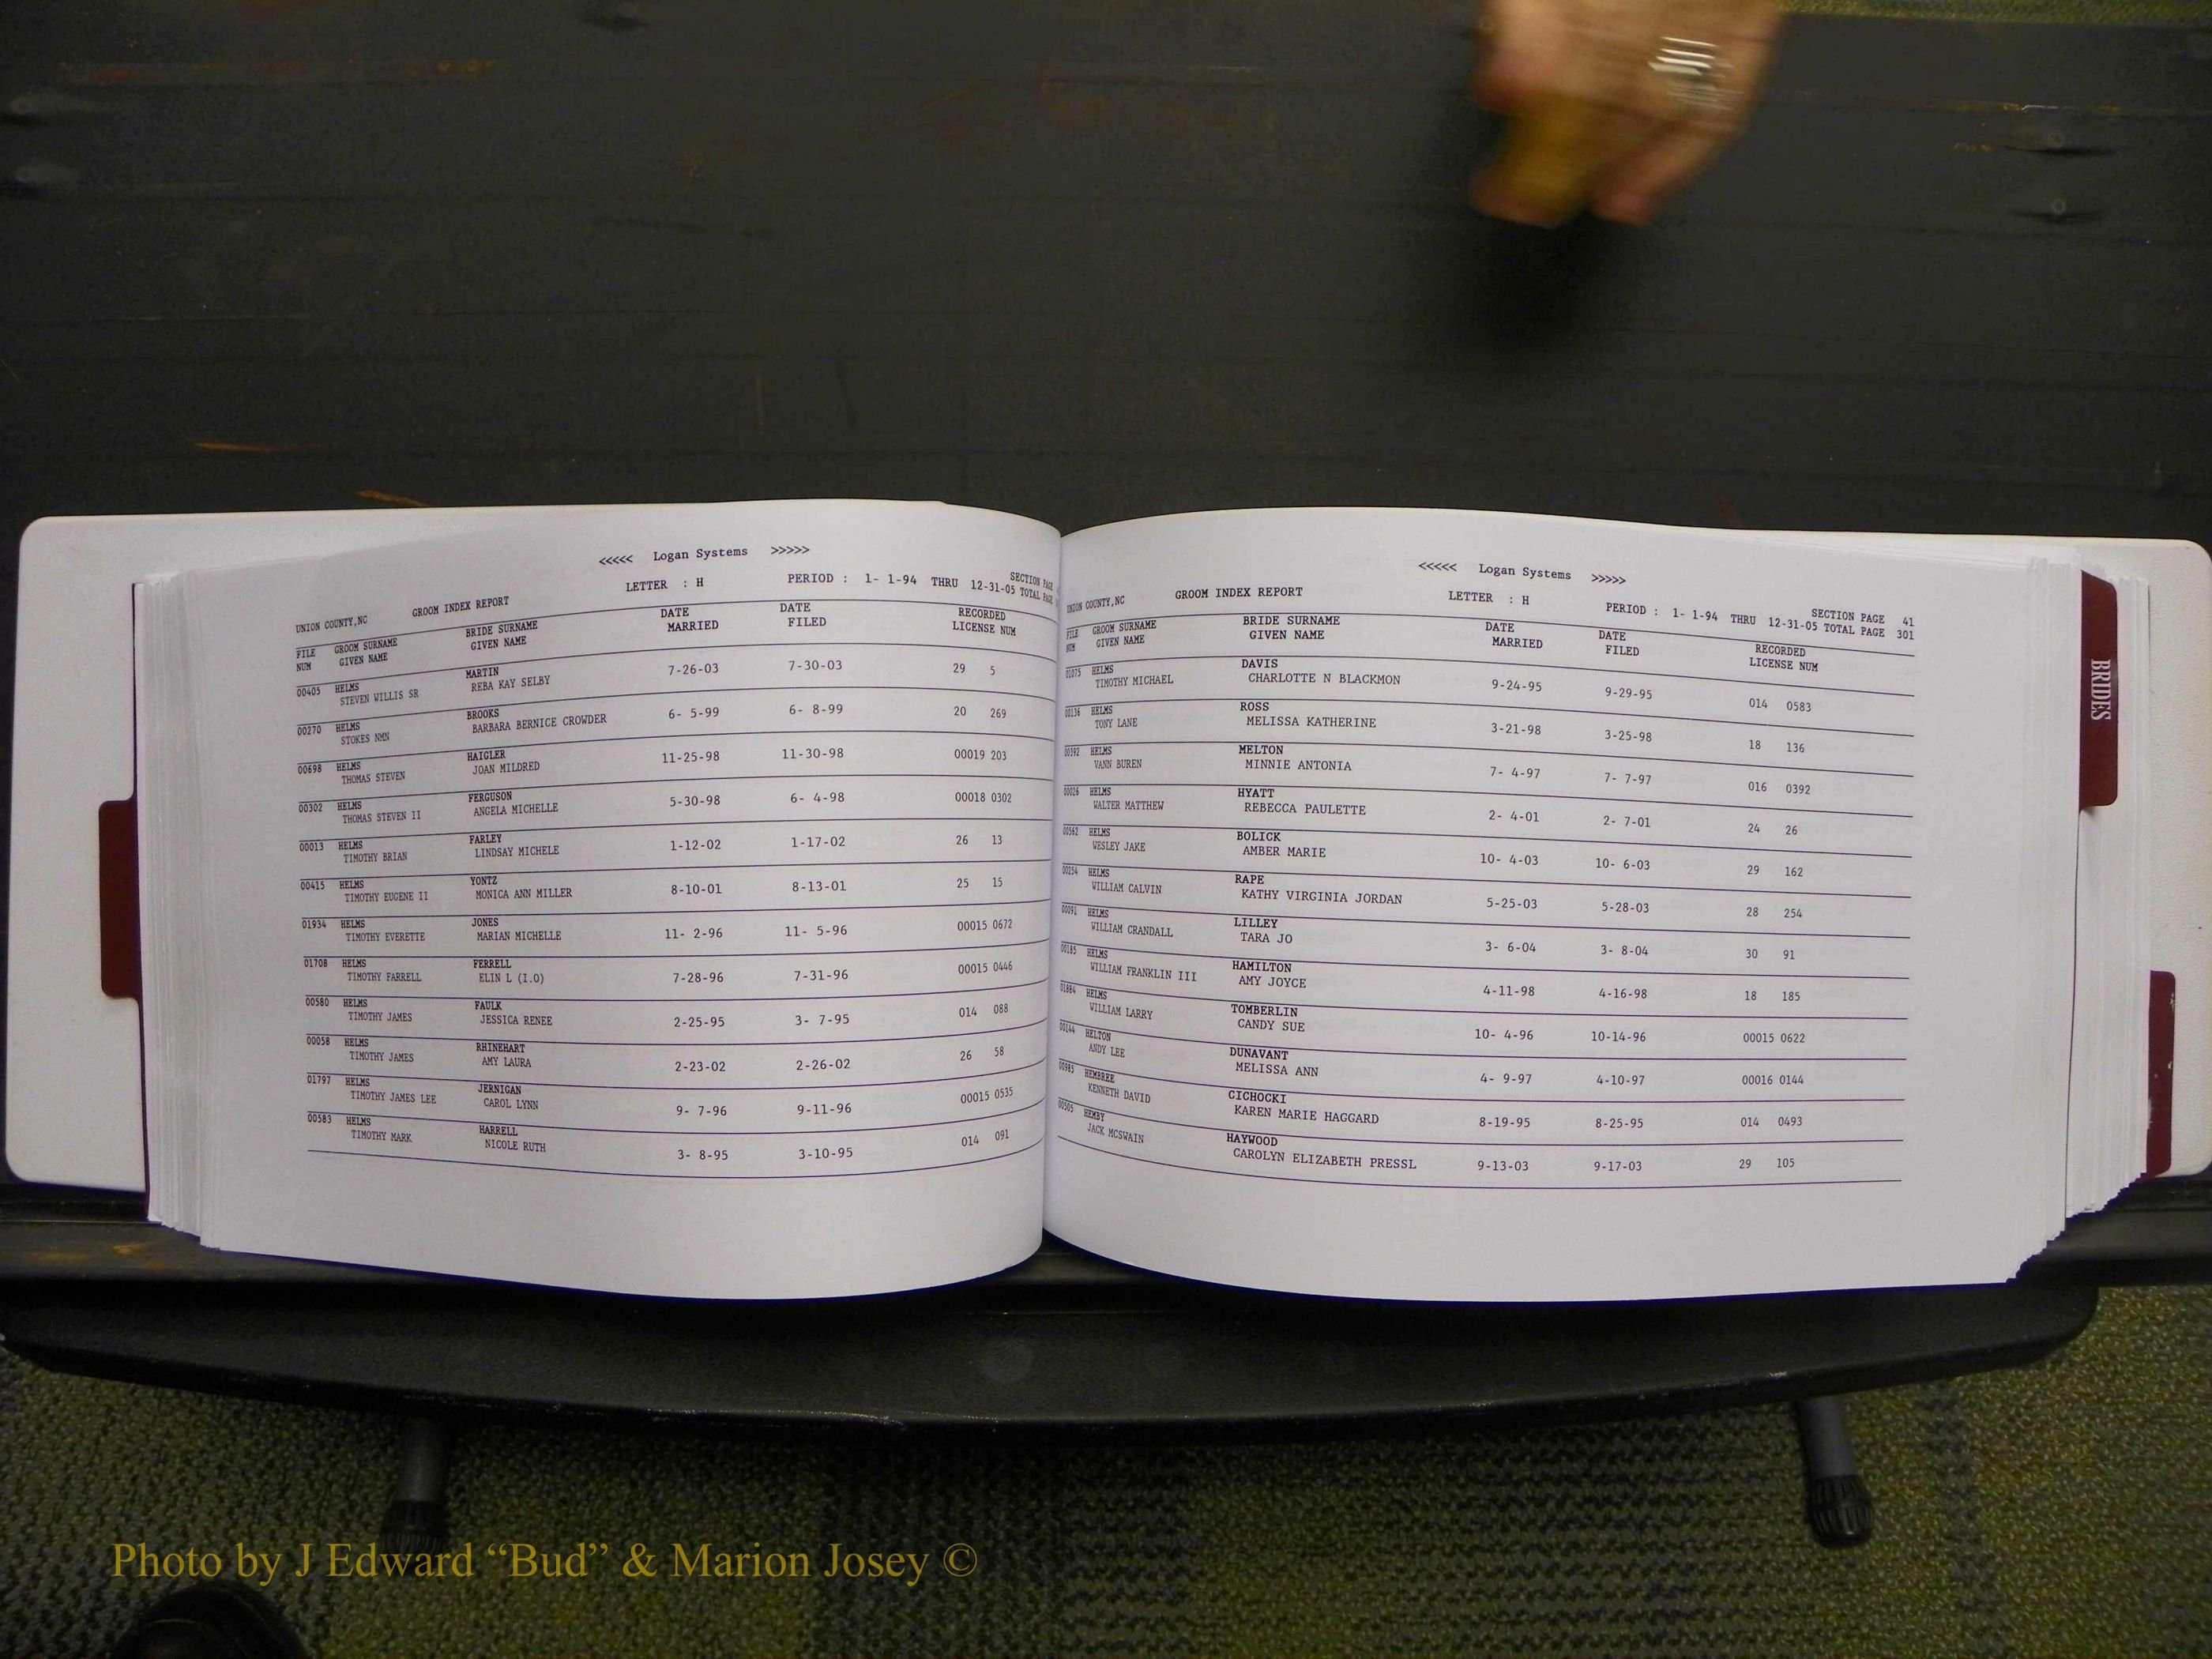 <<<<< Logan Systems >>>>>
UNION COUNTY,NC GROOM INDEX REPORT LETTER : H PERIOD : 1- 1-94 THRU 12-31-05 SECTION PAGE
TOTAL PAGE
FILE GROOM SURNAME BRIDE SURNAME DATE DATE RECORDED
NUM GIVEN NAME GIVEN NAME MARRIED FILED LICENSE NUM
00405 HELMS MARTIN 7-26-03 7-30-03 29 5
STEVEN WILLIS SR REBA KAY SELBY
00270 HELMS BROOKS 6- 5-99 6- 8-99 20 269
STOKES NMN BARBARA BERNICE CROWDER
00698 HELMS HAIGLER 11-25-98 11-30-98 00019 203
THOMAS STEVEN JOAN MILDRED
00302 HELMS FERGUSON 5-30-98 6- 4-98 00018 0302
THOMAS STEVEN II ANGELA MICHELLE
00013 HELMS FARLEY 1-12-02 1-17-02 26 13
TIMOTHY BRIAN LINDSAY MICHELE
00415 HELMS YONTZ 8-10-01 8-13-01 25 15
TIMOTHY EUGENE II MONICA ANN MILLER
01934 HELMS JONES 11- 2-96 11- 5-96 00015 0672
TIMOTHY EVERETTE MARIAN MICHELLE
01708 HELMS FERRELL 7-28-96 7-31-96 00015 0446
TIMOTHY FARRELL ELIN L (I.O)
00580 HELMS FAULK 2-25-95 3- 7-95 014 088
TIMOTHY JAMES JESSICA RENEE
00058 HELMS RHINEHART 2-23-02 2-26-02 26 58
TIMOTHY JAMES AMY LAURA
01797 HELMS JERNIGAN 9- 7-96 9-11-96 00015 0535
TIMOTHY JAMES LEE CAROL LYNN
00583 HELMS HARRELL 3- 8-95 3-10-95 014 091
TIMOTHY MARK NICOLE RUTH
<<<<< Logan Systems >>>>>
UNION COUNTY,NC GROOM INDEX REPORT LETTER : H PERIOD : 1- 1-94 THRU 12-31-05 SECTION PAGE 41
TOTAL PAGE 301
FILE GROOM SURNAME BRIDE SURNAME DATE DATE RECORDED
NUM GIVEN NAME GIVEN NAME MARRIED FILED LICENSE NUM
01075 HELMS DAVIS 9-24-95 9-29-95 014 0583
TIMOTHY MICHAEL CHARLOTTE N BLACKMON
00136 HELMS ROSS 3-21-98 3-25-98 18 136
TONY LANE MELISSA KATHERINE
00392 HELMS MELTON 7- 4-97 7- 7-97 016 0392
VANN BUREN MINNIE ANTONIA
00026 HELMS HYATT 2- 4-01 2- 7-01 24 26
WALTER MATTHEW REBECCA PAULETTE
00562 HELMS BOLICK 10- 4-03 10- 6-03 29 162
WESLEY JAKE AMBER MARIE
00254 HELMS RAPE 5-25-03 5-28-03 28 254
WILLIAM CALVIN KATHY VIRGINIA JORDAN
00091 HELMS LILLEY 3- 6-04 3- 8-04 30 91
WILLIAM CRANDALL TARA JO
00185 HELMS HAMILTON 4-11-98 4-16-98 18 185
WILLIAM FRANKLIN III AMY JOYCE
01884 HELMS TOMBERLIN 10- 4-96 10-14-96 00015 0622
WILLIAM LARRY CANDY SUE
00144 HELTON DUNAVANT 4- 9-97 4-10-97 00016 0144
ANDY LEE MELISSA ANN
00985 HEMBREE CICHOCKI 8-19-95 8-25-95 014 0493
KENNETH DAVID KAREN MARIE HAGGARD
00505 HEMBY HAYWOOD 9-13-03 9-17-03 29 105
JACK MCSWAIN CAROLYN ELIZABETH PRESSL
BRIDES
Photo by J Edward “Bud” & Marion Josey ©